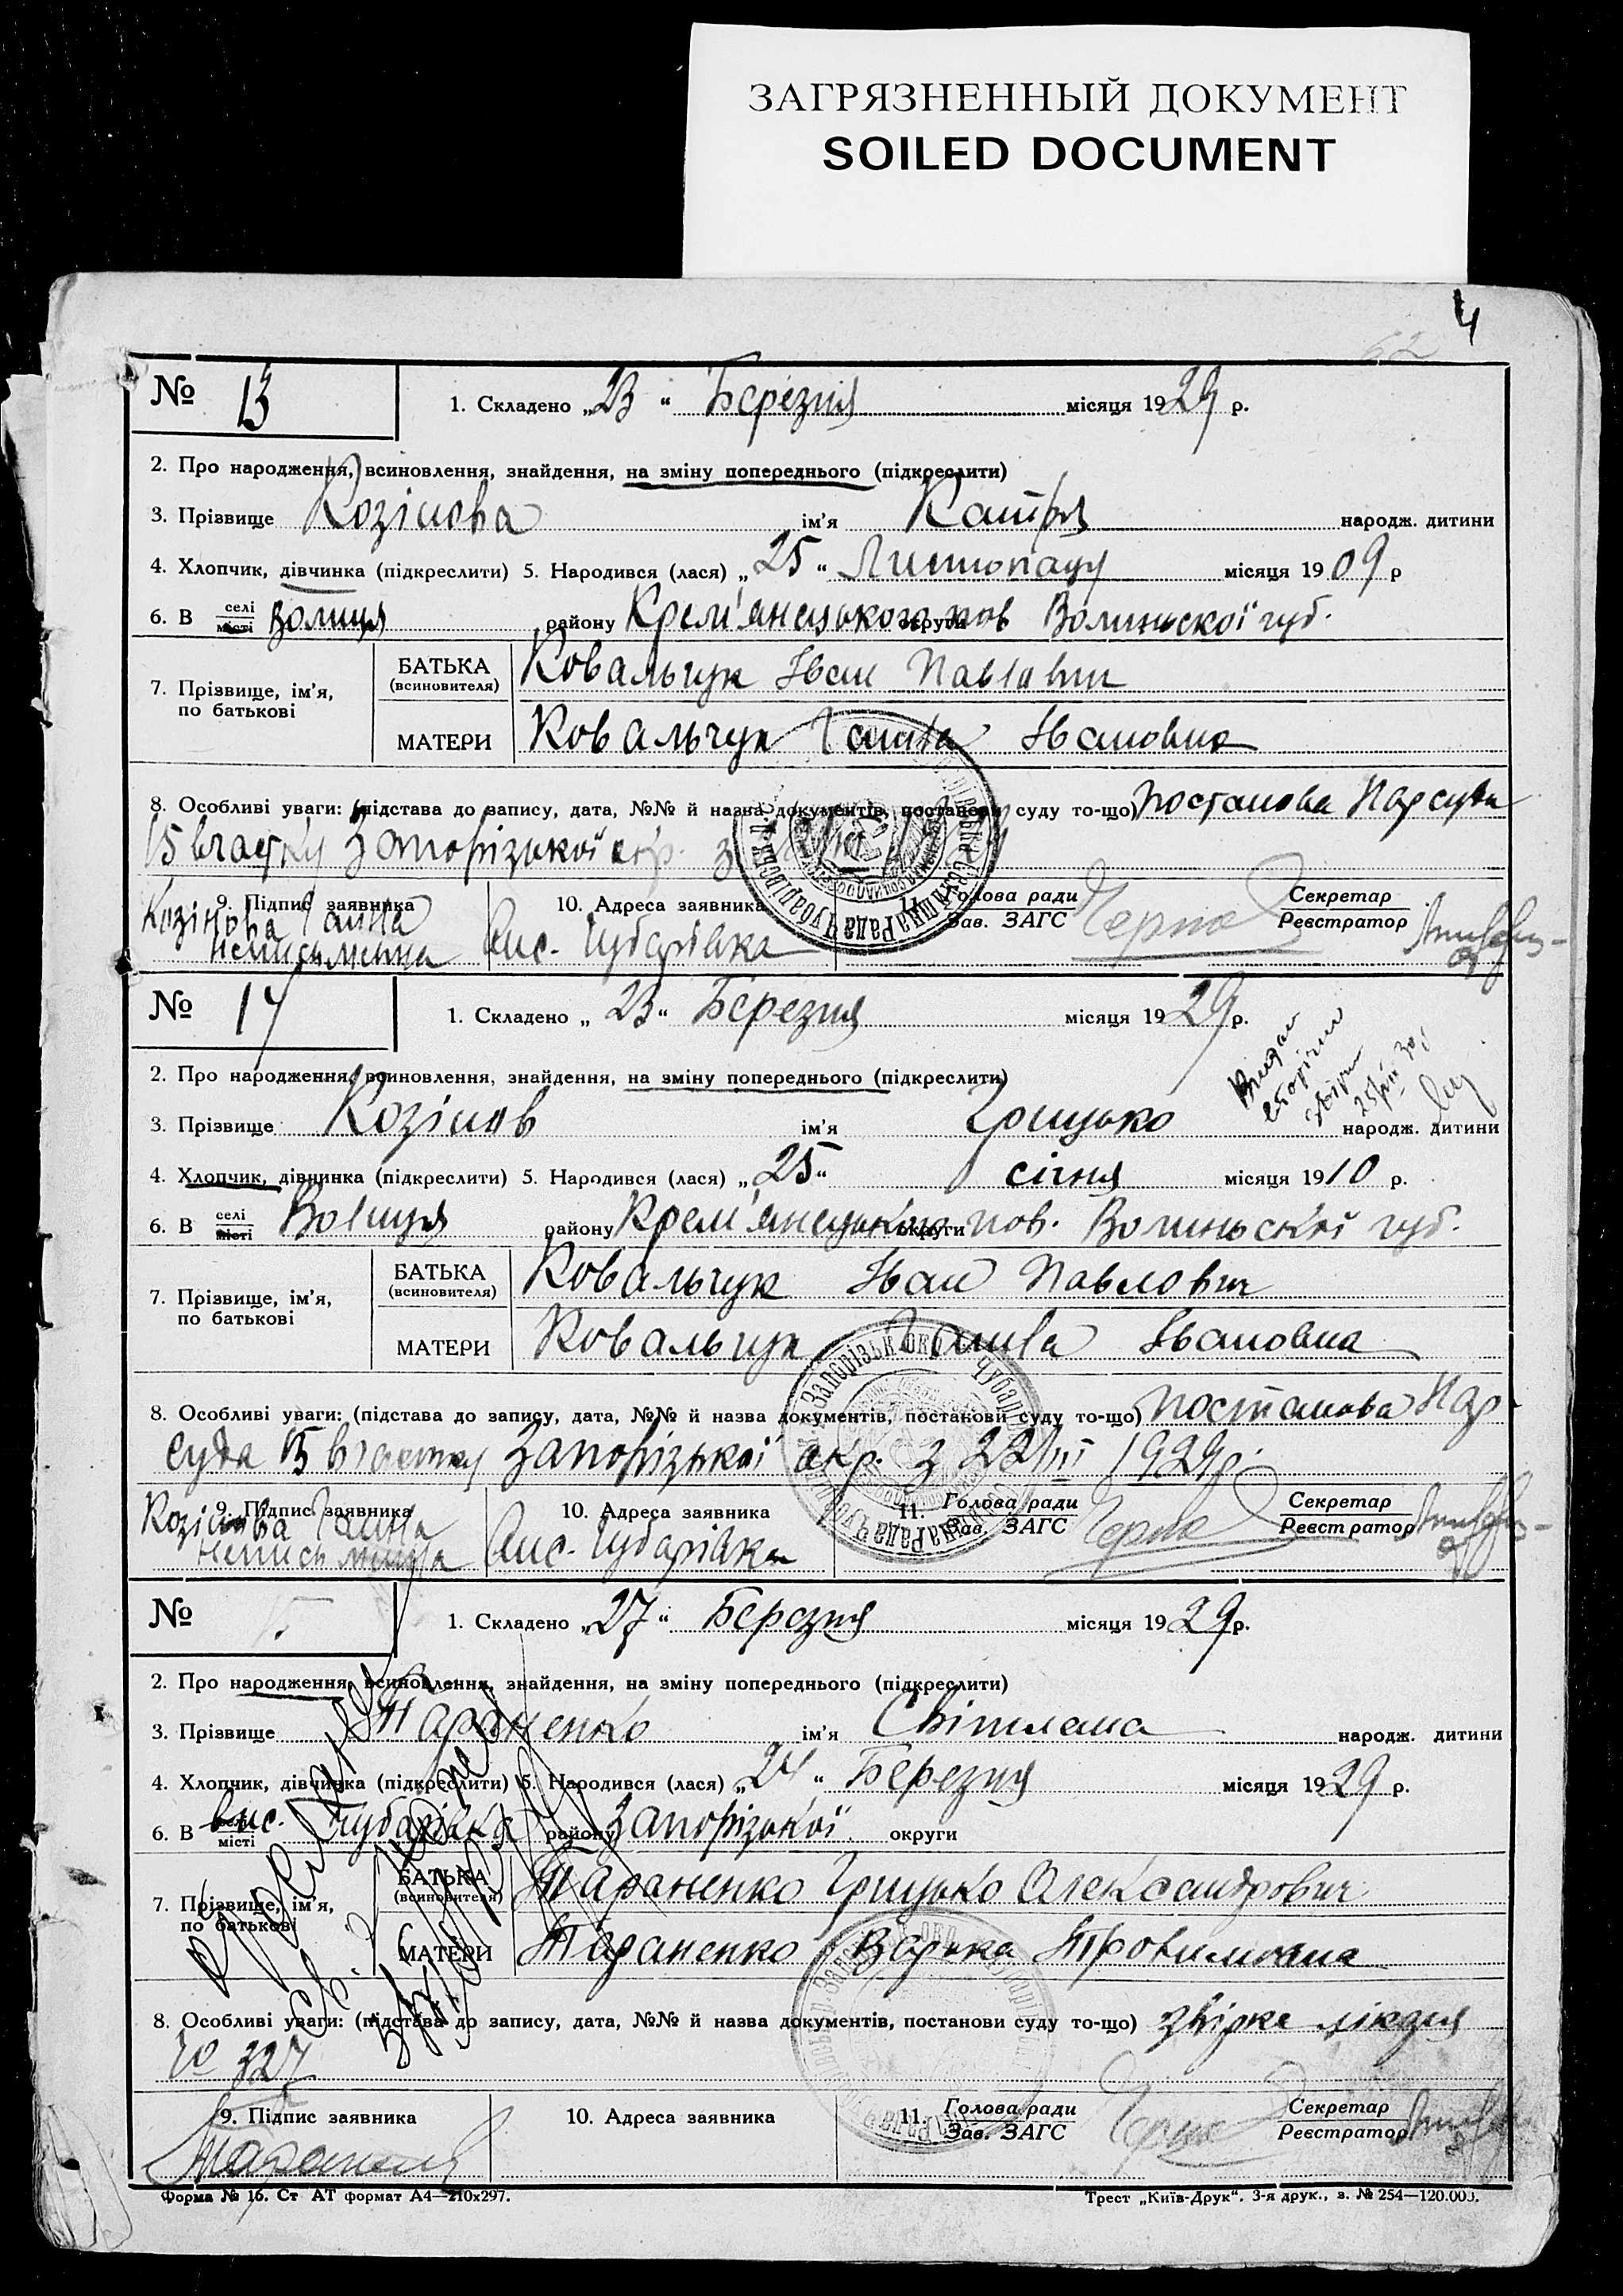 ЗАГРЯЗНЕННЫЙ ДОКУМЕНТ
SOILED DOCUMENT
4
62
№ 13
1. Складено „23“ Березня місяця 1929 р.
2. Про народження, всиновлення, знайдення, на зміну попереднього (підкреслити)
3. Прізвище Козінова ім'я Катря народж. дитини
4. Хлопчик, дівчинка (підкреслити) 5. Народився (лася) „25“ Листопаду місяця 1909 р
6. В селі місті Волиця району Крем'янецького округи пов Волинської губ.
7. Прізвище, ім'я, по батькові
БАТЬКА (всиновителя) Ковальчук Іван Павлович
МАТЕРИ Ковальчук Ганна Івановна
8. Особливі уваги: (підстава до запису, дата, №№ й назва документів, постанови суду то-що) Постанова Нарсуда
15 вчастку Запорізької окр. з
9. Підпис заявника Козінова Ганна
неписьменна
10. Адреса заявника вис. Чубарівка
11. Голова ради
Зав. ЗАГС
Секретар
Реєстратор
№ 14
1. Складено „23“ Березня місяця 1929 р.
2. Про народження, всиновлення, знайдення, на зміну попереднього (підкреслити)
3. Прізвище Козінов ім'я Грицько народж. дитини
4. Хлопчик, дівчинка (підкреслити) 5. Народився (лася) „25“ січня місяця 1910 р.
6. В селі місті Волиця району Крем'янецького округи пов. Волинської губ.
7. Прізвище, ім'я, по батькові
БАТЬКА (всиновителя) Ковальчук Іван Павлович
МАТЕРИ Ковальчук Ганна Івановна
8. Особливі уваги: (підстава до запису, дата, №№ й назва документів, постанови суду то-що) Постанова Нар-
суда 15 вчастку Запорізької окр. з 22/III 1929р.
9. Підпис заявника Козінова Ганна
неписьменна
10. Адреса заявника вис. Чубарівка
11. Голова ради
Зав. ЗАГС
Секретар
Реєстратор
№ 15
1. Складено „27“ Березня місяця 1929 р.
2. Про народження, всиновлення, знайдення, на зміну попереднього (підкреслити)
3. Прізвище Тараненко ім'я Світлана народж. дитини
4. Хлопчик, дівчинка (підкреслити) 5. Народився (лася) „24“ Березня місяця 1929 р.
6. В вис. місті Чубарівка району Запорізької округи
7. Прізвище, ім'я, по батькові
БАТЬКА (всиновителя) Тараненко Грицько Олександрович
МАТЕРИ Тараненко Варка
8. Особливі уваги: (підстава до запису, дата, №№ й назва документів, постанови суду то-що)
№ 327
9. Підпис заявника
10. Адреса заявника
11. Голова ради
Зав. ЗАГС
Секретар
Реєстратор
Форма № 16. Ст АТ формат А4—210x297.
Трест „Київ-Друк“. 3-я друк., з. № 254—120.000.